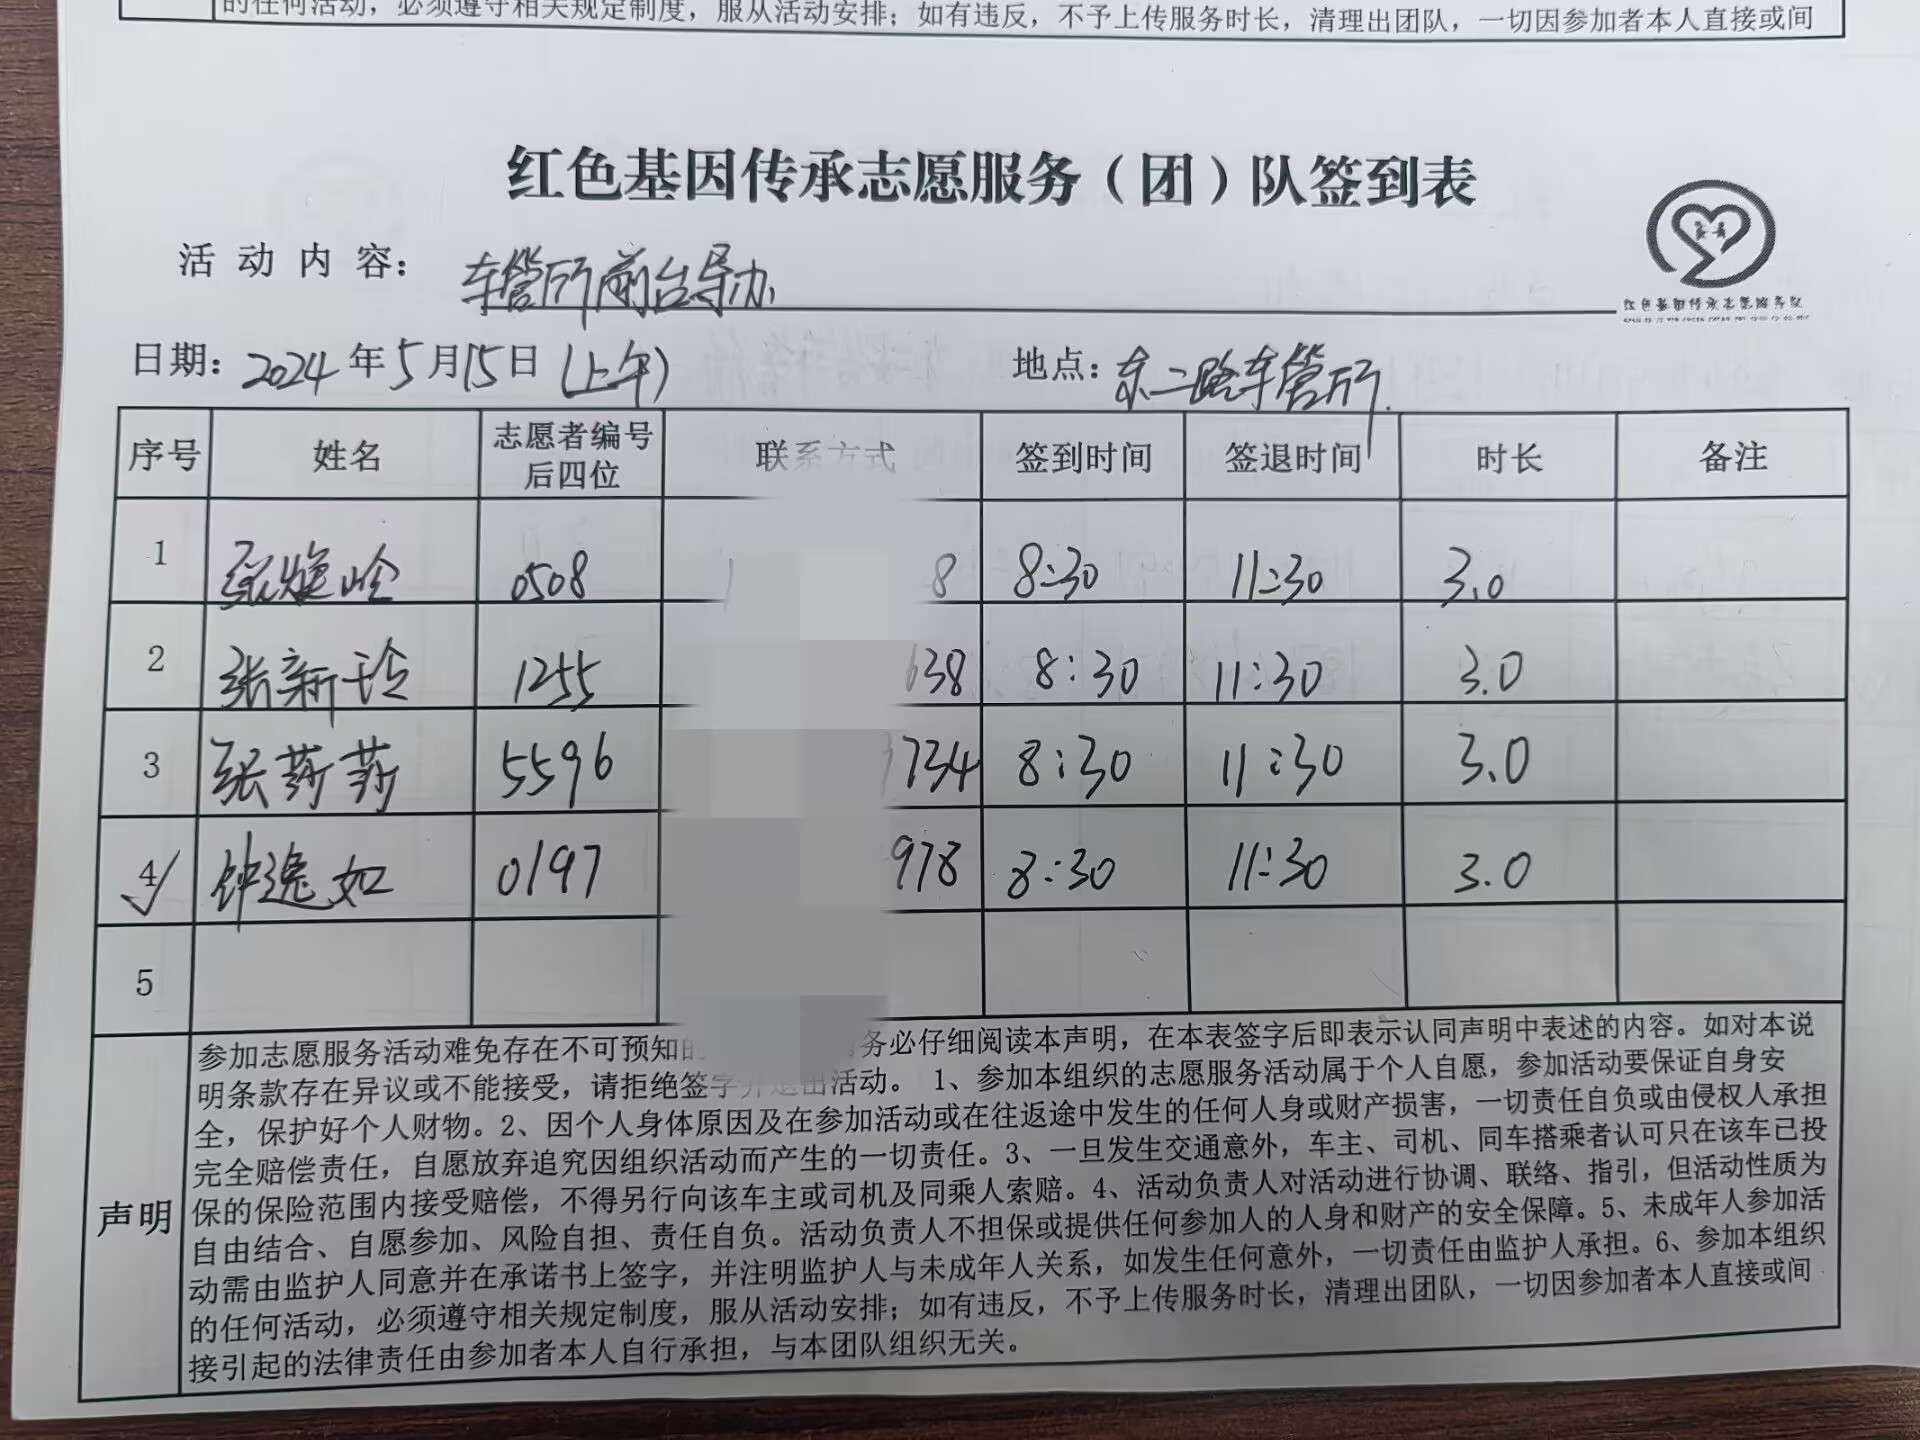 的任何活动，必须遵守相关规定制度，服从活动安排；如有违反，不予上传服务时长，清理出团队，一切因参加者本人直接或间
红色基因传承志愿服务（团）队签到表
活动内容：车管所前台导办
红色基因传承志愿服务队
日期：2024年5月15日(上午) 地点：东二路车管所.
序号 姓名 志愿者编号后四位 联系方式 签到时间 签退时间 时长 备注
1 张 岭 0508 1 8 8:30 11:30 3.0
2 张新玲 1255 638 8:30 11:30 3.0
3 张莎莎 5596 734 8:30 11:30 3.0
4 ✓ 钟逸如 0197 978 8:30 11:30 3.0
5
声明
参加志愿服务活动难免存在不可预知的 务必仔细阅读本声明，在本表签字后即表示认同声明中表述的内容。如对本说
明条款存在异议或不能接受，请拒绝签字并退出活动。1、参加本组织的志愿服务活动属于个人自愿，参加活动要保证自身安
全，保护好个人财物。2、因个人身体原因及在参加活动或在往返途中发生的任何人身或财产损害，一切责任自负或由侵权人承担
完全赔偿责任，自愿放弃追究因组织活动而产生的一切责任。3、一旦发生交通意外，车主、司机、同车搭乘者认可只在该车已投
保的保险范围内接受赔偿，不得另行向该车主或司机及同乘人索赔。4、活动负责人对活动进行协调、联络、指引，但活动性质为
自由结合、自愿参加、风险自担、责任自负。活动负责人不担保或提供任何参加人的人身和财产的安全保障。5、未成年人参加活
动需由监护人同意并在承诺书上签字，并注明监护人与未成年人关系，如发生任何意外，一切责任由监护人承担。6、参加本组织
的任何活动，必须遵守相关规定制度，服从活动安排；如有违反，不予上传服务时长，清理出团队，一切因参加者本人直接或间
接引起的法律责任由参加者本人自行承担，与本团队组织无关。